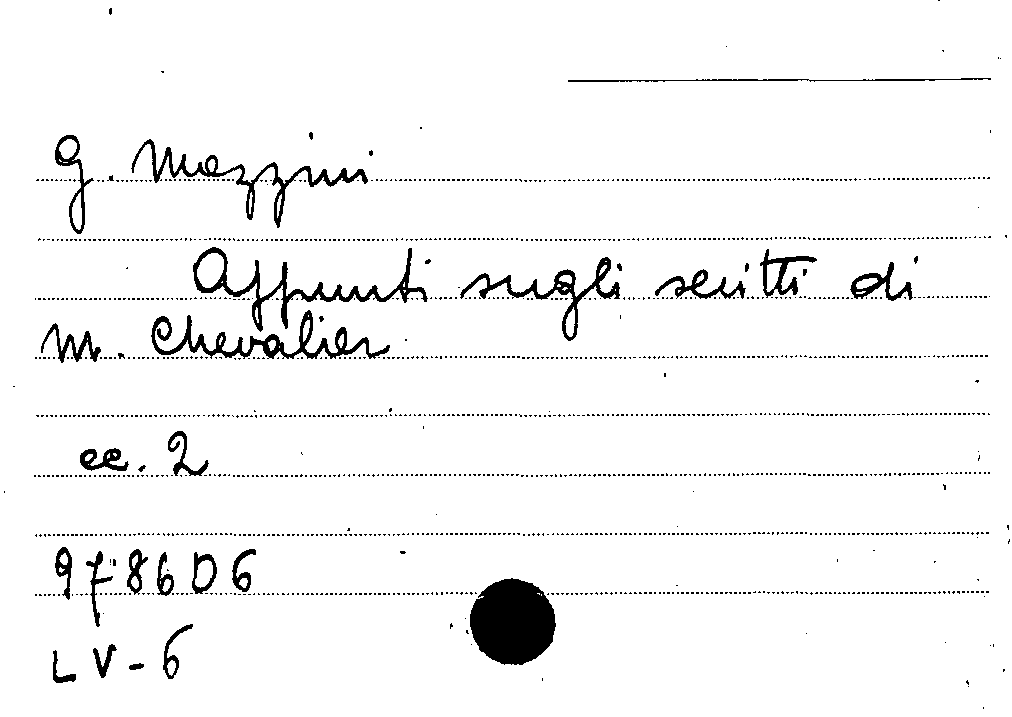 G. Mazzini
Appunti sugli scritti di
M. Chevalier
cc. 2
9786 D 6
LV-6